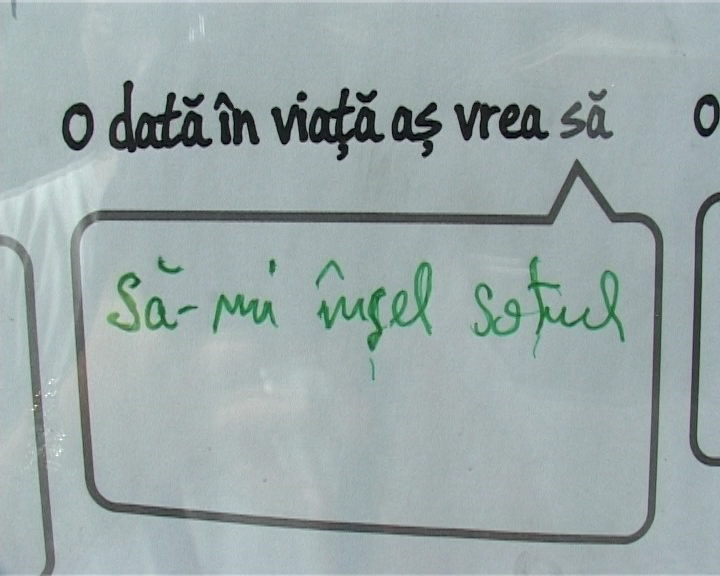 O dată în viață aș vrea să
O
Să-mi înșel soțul